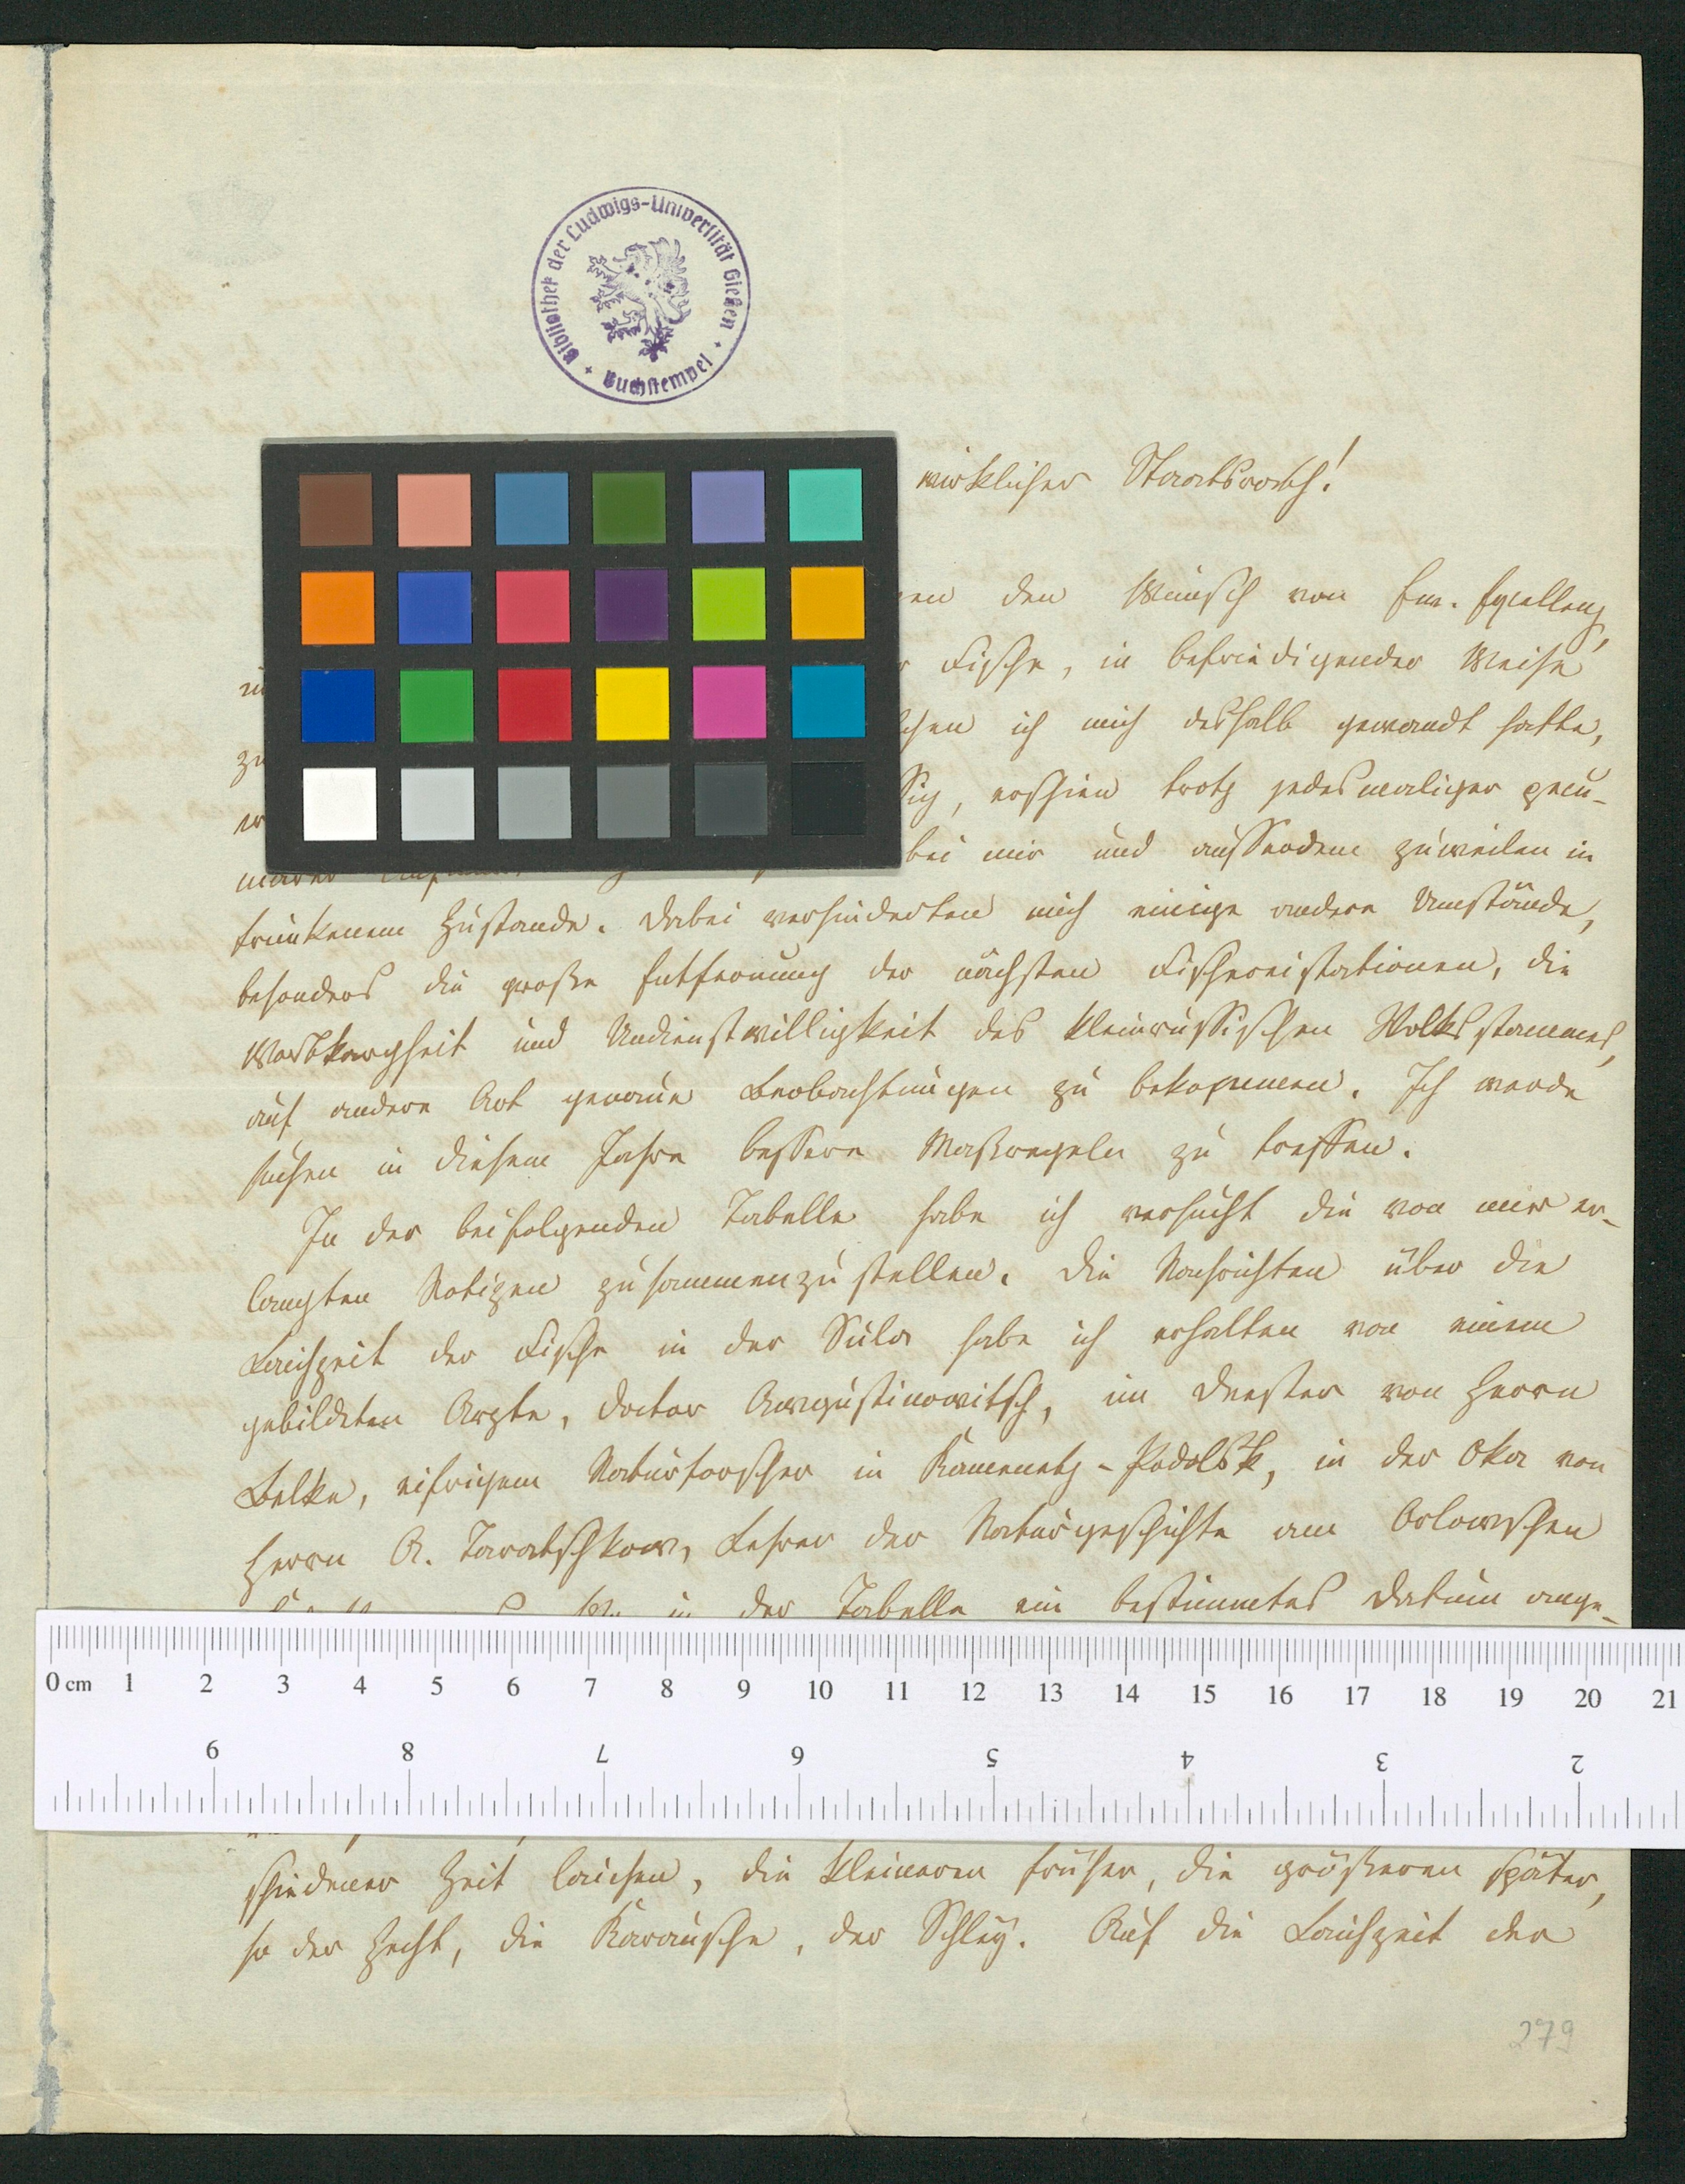 Bibliothek der Ludwigs-Universität Gießen
Buchstempel
wirklicher Staatsrath!
den Wunsch von Ew. Excellenz,
Fische, in befriedigender Weise
zu ich mich deshalb gewandt hatte,
erschien trotz jedesmaliger pecu-
bei mir und ausserdem zuweilen in
trunkenem Zustande. Dabei verhinderten mich einige andere Umstände,
besonders die große Entfernung der nächsten Fischereistationen, die
Wortkargheit und Undienstwilligkeit des kleinrussischen Volksstammes,
auf andere Art genaue Beobachtungen zu bekommen. Ich werde
suchen in diesem Jahre bessere Maßregeln zu treffen.
In der beifolgenden Tabelle habe ich versucht die von mir er-
langten Notizen zusammenzustellen. Die Nachrichten über die
Laichzeit der Fische in der Sula habe ich erhalten von einem
gebildeten Arzte, Doctor Awgustinowitsch, im Dnester von Herrn
Belke, eifrigem Naturforscher in Kamenetz-Podolsk, in der Oka von
Herrn A. Taratschkow, Lehrer der Naturgeschichte am Orlowschen
in der Tabelle ein bestimmtes Datum ange-
0 cm 1 2 3 4 5 6 7 8 9 10 11 12 13 14 15 16 17 18 19 20 21
9 8 7 6 5 4 3 2
schiedener Zeit laichen, die kleineren früher, die größeren später,
so der Hecht, die Karausche, der Schley. Auf die Laichzeit der
279